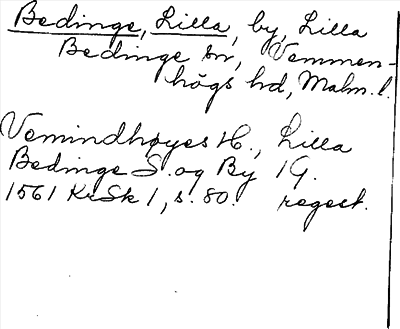 Bedinge, Lilla, by, Lilla
Bedinge sn, Vemmen-
högs hd, Malm. l.
Vemindhøyes H., Lilla
Bedinge S. og By 1 G.
1561 KrSk 1, s. 80. regest.